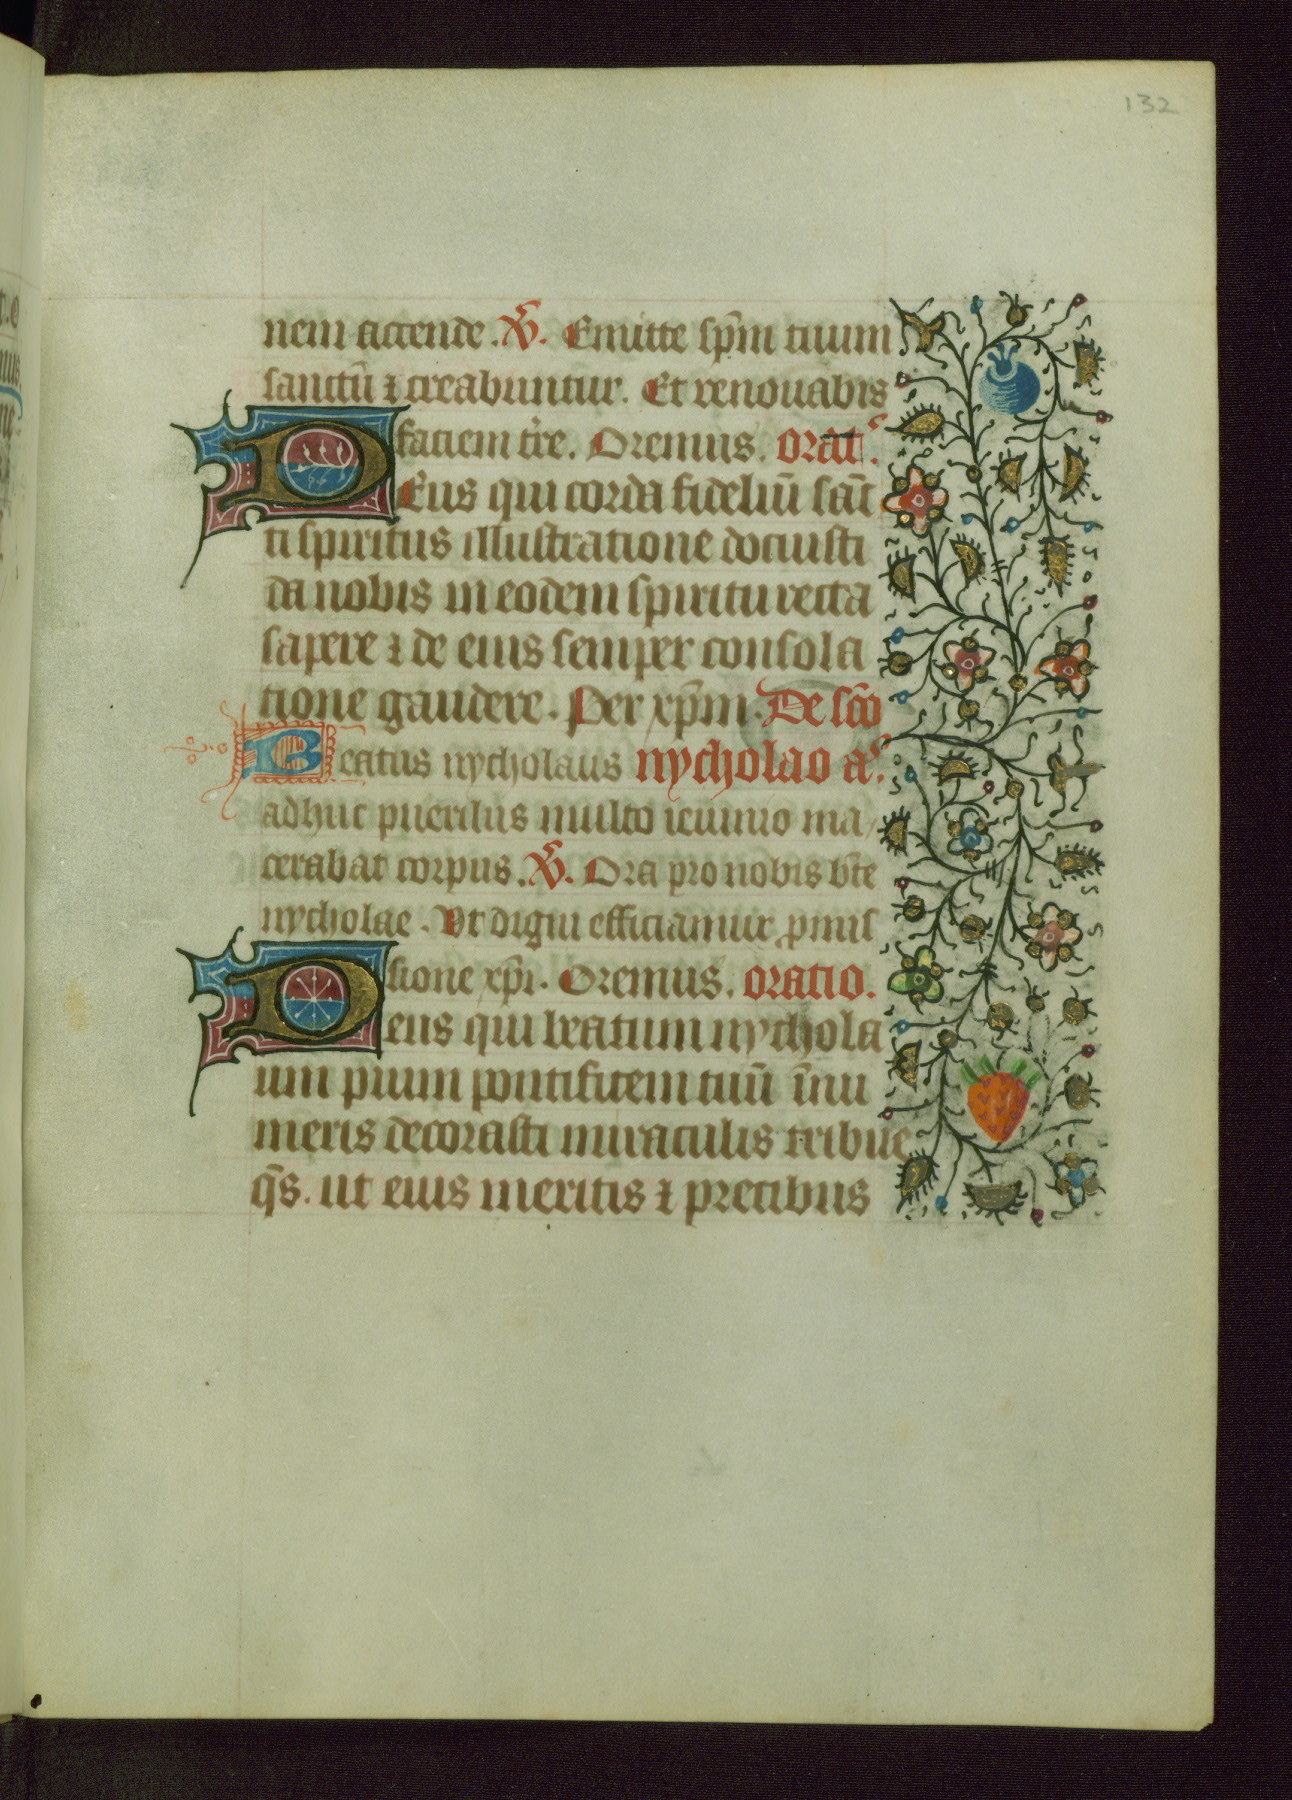 132
nem accende. V̄. Emitte sp̄m tuum
sanctū ⁊ creabuntur. Et renouabis
faciem tr̄e. Oremus. orat̄.
DEus qui corda fideliū sāc
ti spiritus illustratione docuisti
da nobis in eodem spiritu recta
sapere ⁊ de eius semper consola
tione gaudere. Per xp̄m. De sc̄o
Beatus nycholaus nycholao a.
adhuc puerilus multo ieiunio ma
cerabat corpus. V̄. Ora pro nobis bt̄e
nycholae. Vt digni efficiamur ꝓmis
sione xp̄i. Oremus. oratio.
Deus qui beatum nychola
um pium pontificem tuū īnu
meris decorasti miraculis tribue
q̄s. ut eius meritis ⁊ precibus